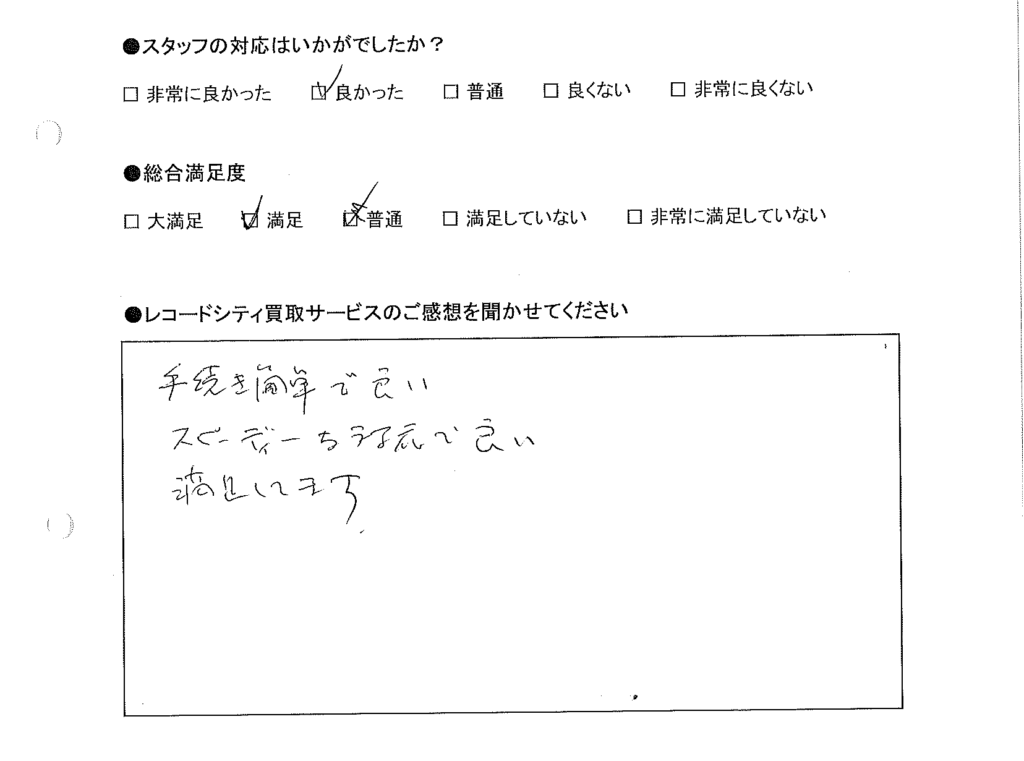 ●スタッフの対応はいかがでしたか？
□ 非常に良かった ☑ 良かった □ 普通 □ 良くない □ 非常に良くない
●総合満足度
□ 大満足 ☑ 満足 ☑ 普通 □ 満足していない □ 非常に満足していない
●レコードシティ買取サービスのご感想を聞かせてください
手続き簡単で良い
スピーディーな対応で良い
満足してます